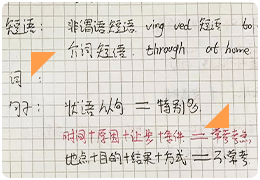 短语：非谓语短语 ving ved 短语 to
介词短语. through at home
词：
句子：状语从句 = 特别多
时间+原因+让步+条件 = 常考考点
地点+目的+结果+方式 = 不常考